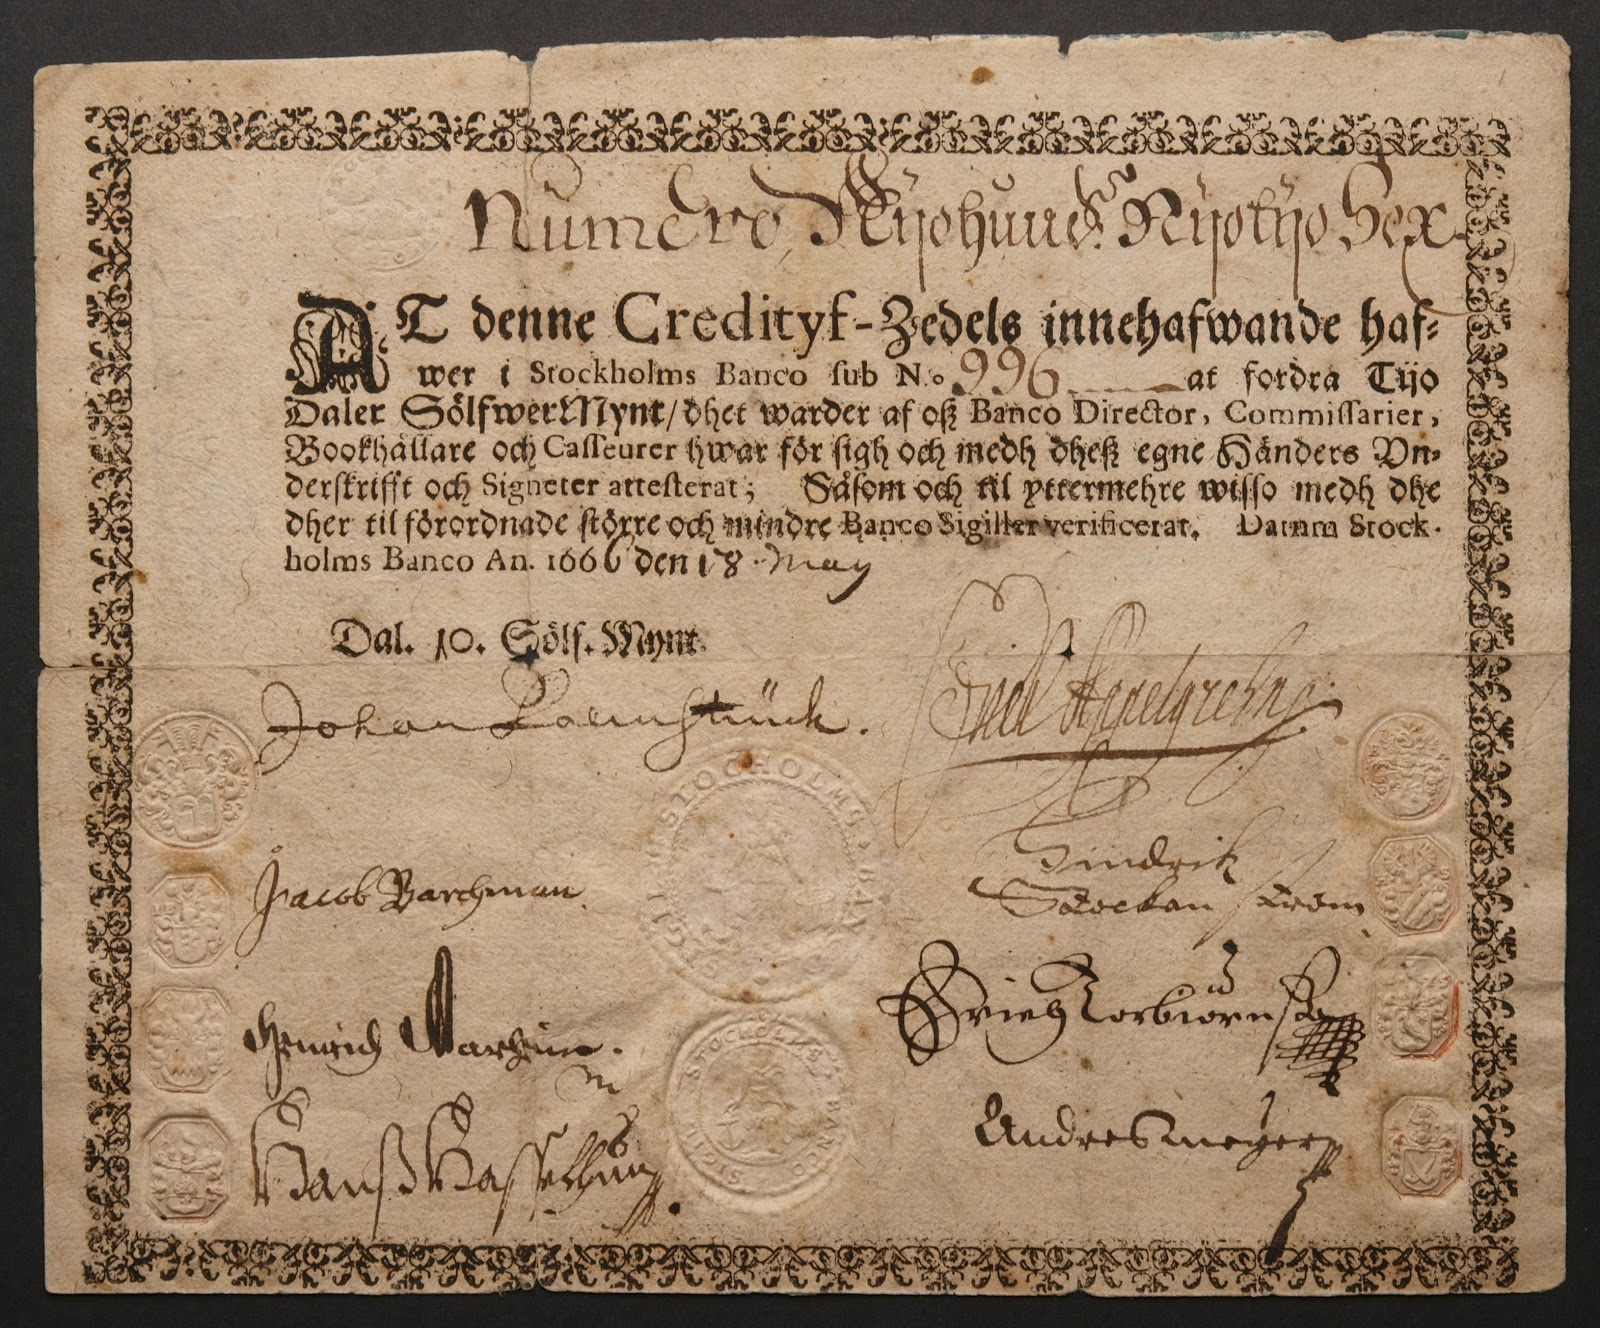 Numero, Nijohund. Nijotijo Sex
AT denne Credityf-Zedels innehafwande haf-
wer i Stockholms Banco sub N.o 996 at fordra Tijo
Daler SölfwerMynt/dhet warder af oß Banco Director, Commissarier,
Bookhållare och Casseurer hwar för sigh och medh dheß egne Händers Vn-
derskrifft och Signeter attesterat; Såsom och til yttermehre wisso medh dhe
dher til förordnade större och mindre Banco Sigiller verificerat. Datum Stock-
holms Banco An. 1666 den 18. May
Dal. 10. Sölf. Mynt.
Johan
Appelgrehn
STOCHOLMS BANCO
Jacob Barchman
Hindrik
Henrich
STOCHOLMS BANCO
Andres meyer